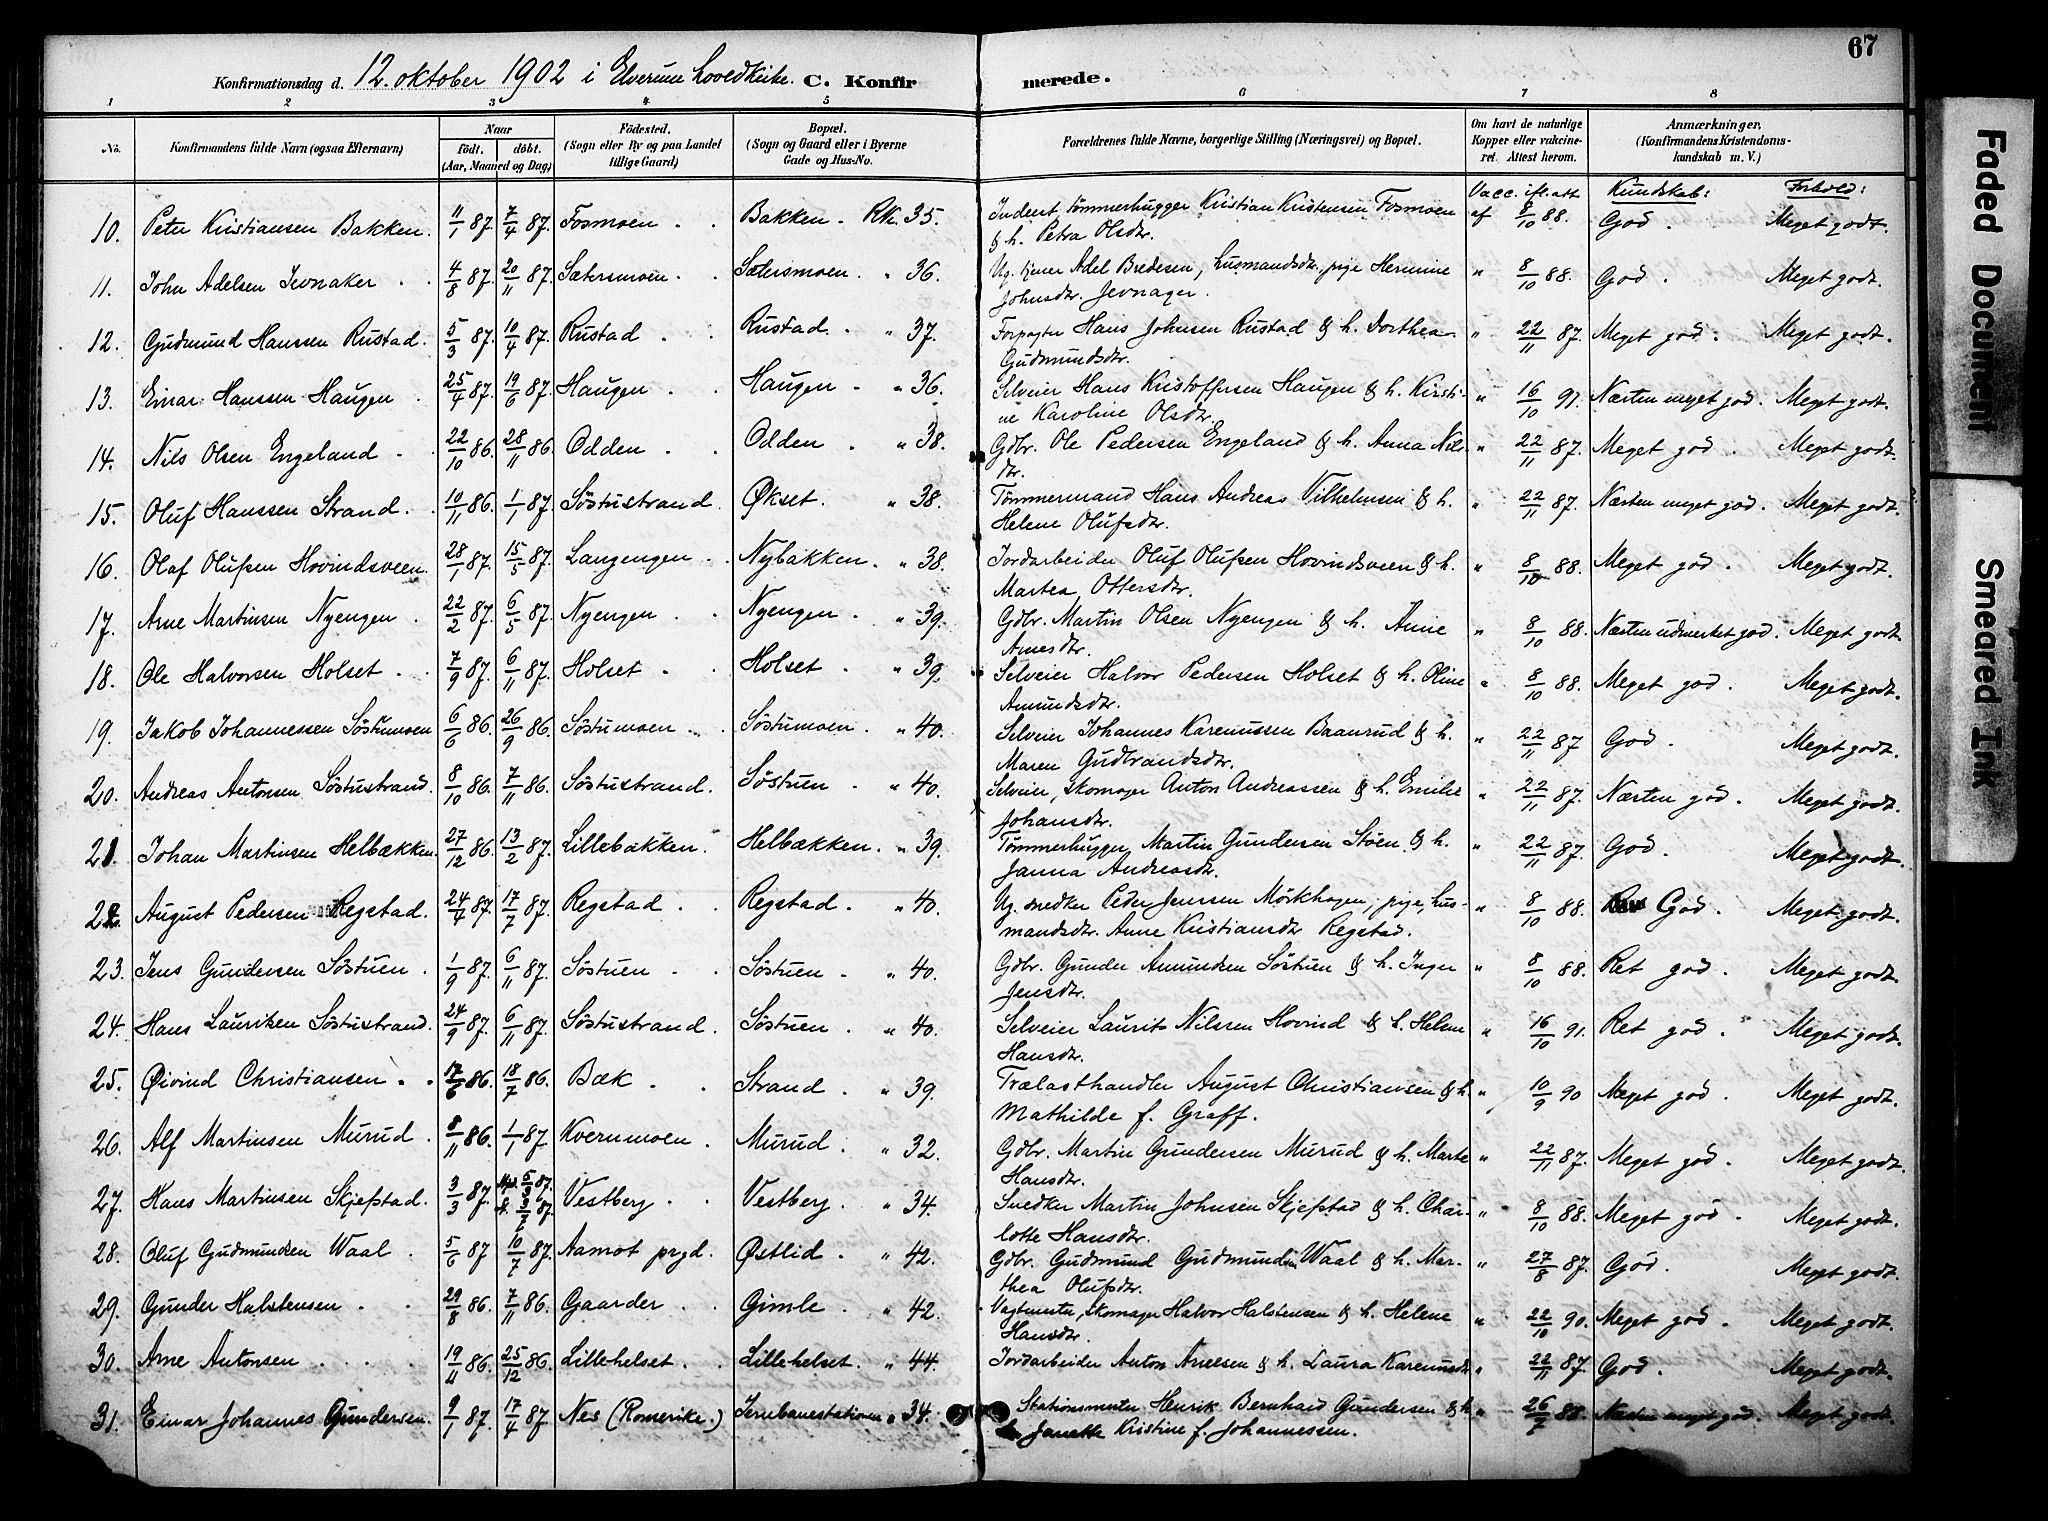 67
Konfirmationsdag d. 12. oktober 1902 i Elverum hovedkirke. C. Konfirmerede.
1 2 3 4 5 6 7 8
No. Konfirmandens fulde Navn (ogsaa Efternavn) Naar født. døbt. (Aar, Maaned og Dag) Fødested. (Sogn eller By og paa Landet tillige Gaard) Bopæl. (Sogn og Gaard eller i Byerne Gade og Hus-No. Forældrenes fulde Navne, borgerlige Stilling (Næringsvei) og Bopæl. Om havt de naturlige Kopper eller vakcineret. Attest herom. Anmærkninger. (Konfirmandens Kristendomskundskab m. V.)
Vacc. ifl. att. Kundskab: Forhold:
10. Peter Kristiansen Bakken. 11/1 87. 7/4 87. Fosmoen. Bakken. Rk. 35. Inderst, tømmerhugger Kristian Kristensen Fosmoen & h. Petra Olsdtr. af 8/10 88. God. Meget godt.
11. John Adelsen Jevnaker 4/8 87. 20/11 87. Sætersmoen. Sætersmoen. " 36. Ug. tjener Adel Bredesen, husmandsdtr., pige Hermine Johnsdtr. Jevnager. " 8/10 88. God. Meget godt.
12. Gudmund Hanssen Rustad. 5/3 87. 10/4 87. Rustad. Rustad. " 37. Forpagter Hans Johnsen Rustad & h. Dorthea Gudmundsdtr. " 22/11 87. Meget god. Meget godt.
13. Einar Hanssen Haugen 25/4 87. 19/6 87. Haugen. Haugen. " 36. Selveier Hans Kristoffersen Haugen & h. Kirstine Karoline Olsdtr. " 16/10 91. Næsten meget god. Meget godt.
14. Nils Olsen Engeland. 22/10 86. 28/11 86. Odden. Odden. " 38. Gdbr. Ole Pedersen Engeland & h. Anna Nilsdtr. " 22/11 87. Meget god. Meget godt.
15. Oluf Hanssen Strand. 10/11 86. 1/1 87. Söstustrand. Økset. " 38. Tømmermand Hans Andreas Vilhelmsen & h. Helene Olufsdtr. " 22/11 87. Næsten meget god. Meget godt.
16. Olaf Olufsen Hovindsveen. 28/1 87. 15/5 87. Langengen. Nybakken. " 38. Jordarbeider Oluf Olufsen Hovindsveen & h. Martea Ottersdtr. " 8/10 88. Meget god. Meget godt.
17. Arne Martinsen Nyengen. 22/2 87. 6/5 87. Nyengen. Nyengen. " 39. Gdbr. Martin Olsen Nyengen & h. Anne Arnesdtr. " 8/10 88. Næsten udmerket god. Meget godt
18. Ole Halvorsen Holset. 7/9 87. 6/11 87. Holset. Holset. " 39. Selveier Halvor Pedersen Holset & h. Oline Amundsdtr. " 8/10 88. Meget god. Meget godt.
19. Jakob Johannessen Söstumoen 6/6 86. 26/9 86. Söstumoen. Söstumoen. " 40. Selveier Johannes Karenussen Baanrud & h. Maren Gudbrandsdtr. " 22/11 87 God. Meget godt.
20. Andreas Antonsen Söstustrand. 8/10 86. 7/11 86. Söstustrand. Söstuen. " 40. Selveier, skomager Anton Andreassen & h. Emilie Johansdtr. " 22/11 87. Næsten god. Meget godt.
21. Johan Martinsen Helbækken. 27/12 86. 13/2 87. Lillebakken. Helbækken. " 39. Tømmerhugger Martin Gundersen Støen & h. Janna Andreasdtr. " 22/11 87. God. Meget godt.
22. August Pedersen Regstad. 24/4 87. 17/7 87. Regstad. Regstad. " 40. Ug. snedker Peder Jenssen Mörkhagen, pige, husmandsdtr. Anne Kristiansdtr Regstad. " 8/10 88. God. Meget godt.
23. Jens Gundersen Söstuen. 1/9 87. 6/11 87. Söstuen. Söstuen. " 40. Gdbr. Gunder Amundsen Söstuen & h. Inger Jensdtr. " 8/10 88. Ret god. Meget godt.
24. Hans Lauritsen Söstustrand. 24/9 87. 6/11 87. Söstustrand. Söstuen. " 40. Selveier Laurits Nilssen Hovind & h. Helene Hansdtr. " 16/10 91. Ret god. Meget godt.
25. Øivind Christiansen. 17/6 86. 18/7 86. Bæk. Strand. " 39. Trælasthandler August Christiansen & h. Mathilde f. Graff. " 10/9 90 Meget god. Meget godt.
26. Alf Martinsen Murud. 8/11 86. 1/1 87. Kvernmoen. Murud. " 32. Gdbr. Martin Gundersen Murud & h. Marte Hansdtr. " 22/11 87. Meget god. Meget godt.
27. Hans Martinsen Skjefstad. 3/3 87. 5/3 87. 3/7 87. Vestberg. Vestberg. " 34. Snedker Martin Johnsen Skjefstad & h. Charlotte Hansdtr. " 8/10 88. Meget god. Meget godt.
28. Oluf Gudmundsen Waal. 5/6 87 10/7 87. Aamot prgd. Østlid. " 42. Gdbr. Gudmund Gudmundsen Waal & h. Marthea Olufsdtr. " 27/8 87. God. Meget godt.
29. Gunder Halstensen. 29/8 86. 7/11 86. Gaarder. Gimle. " 42. Vagtmester, skomager Halvor Halstensen & h. Helene Hansdtr. " 22/10 90. Meget god. Meget godt.
30. Arne Antonsen. 19/11 86. 25/12 86. Lillehelset. Lillehelset. " 44. Jordarbeider Anton Arnesen & h. Laura Karenusdtr " 22/11 87. God. Meget godt.
31. Einar Johannes Gundersen. 9/1 87. 17/4 87. Nes (Romerike.) Jernbanestationen " 34. Stationsmester Henrik Bernhard Gundersen & h. Janette Kristine f. Johannessen. " 26/7 88. Næsten meget god. Meget godt.
Faded Document
Smeared Ink